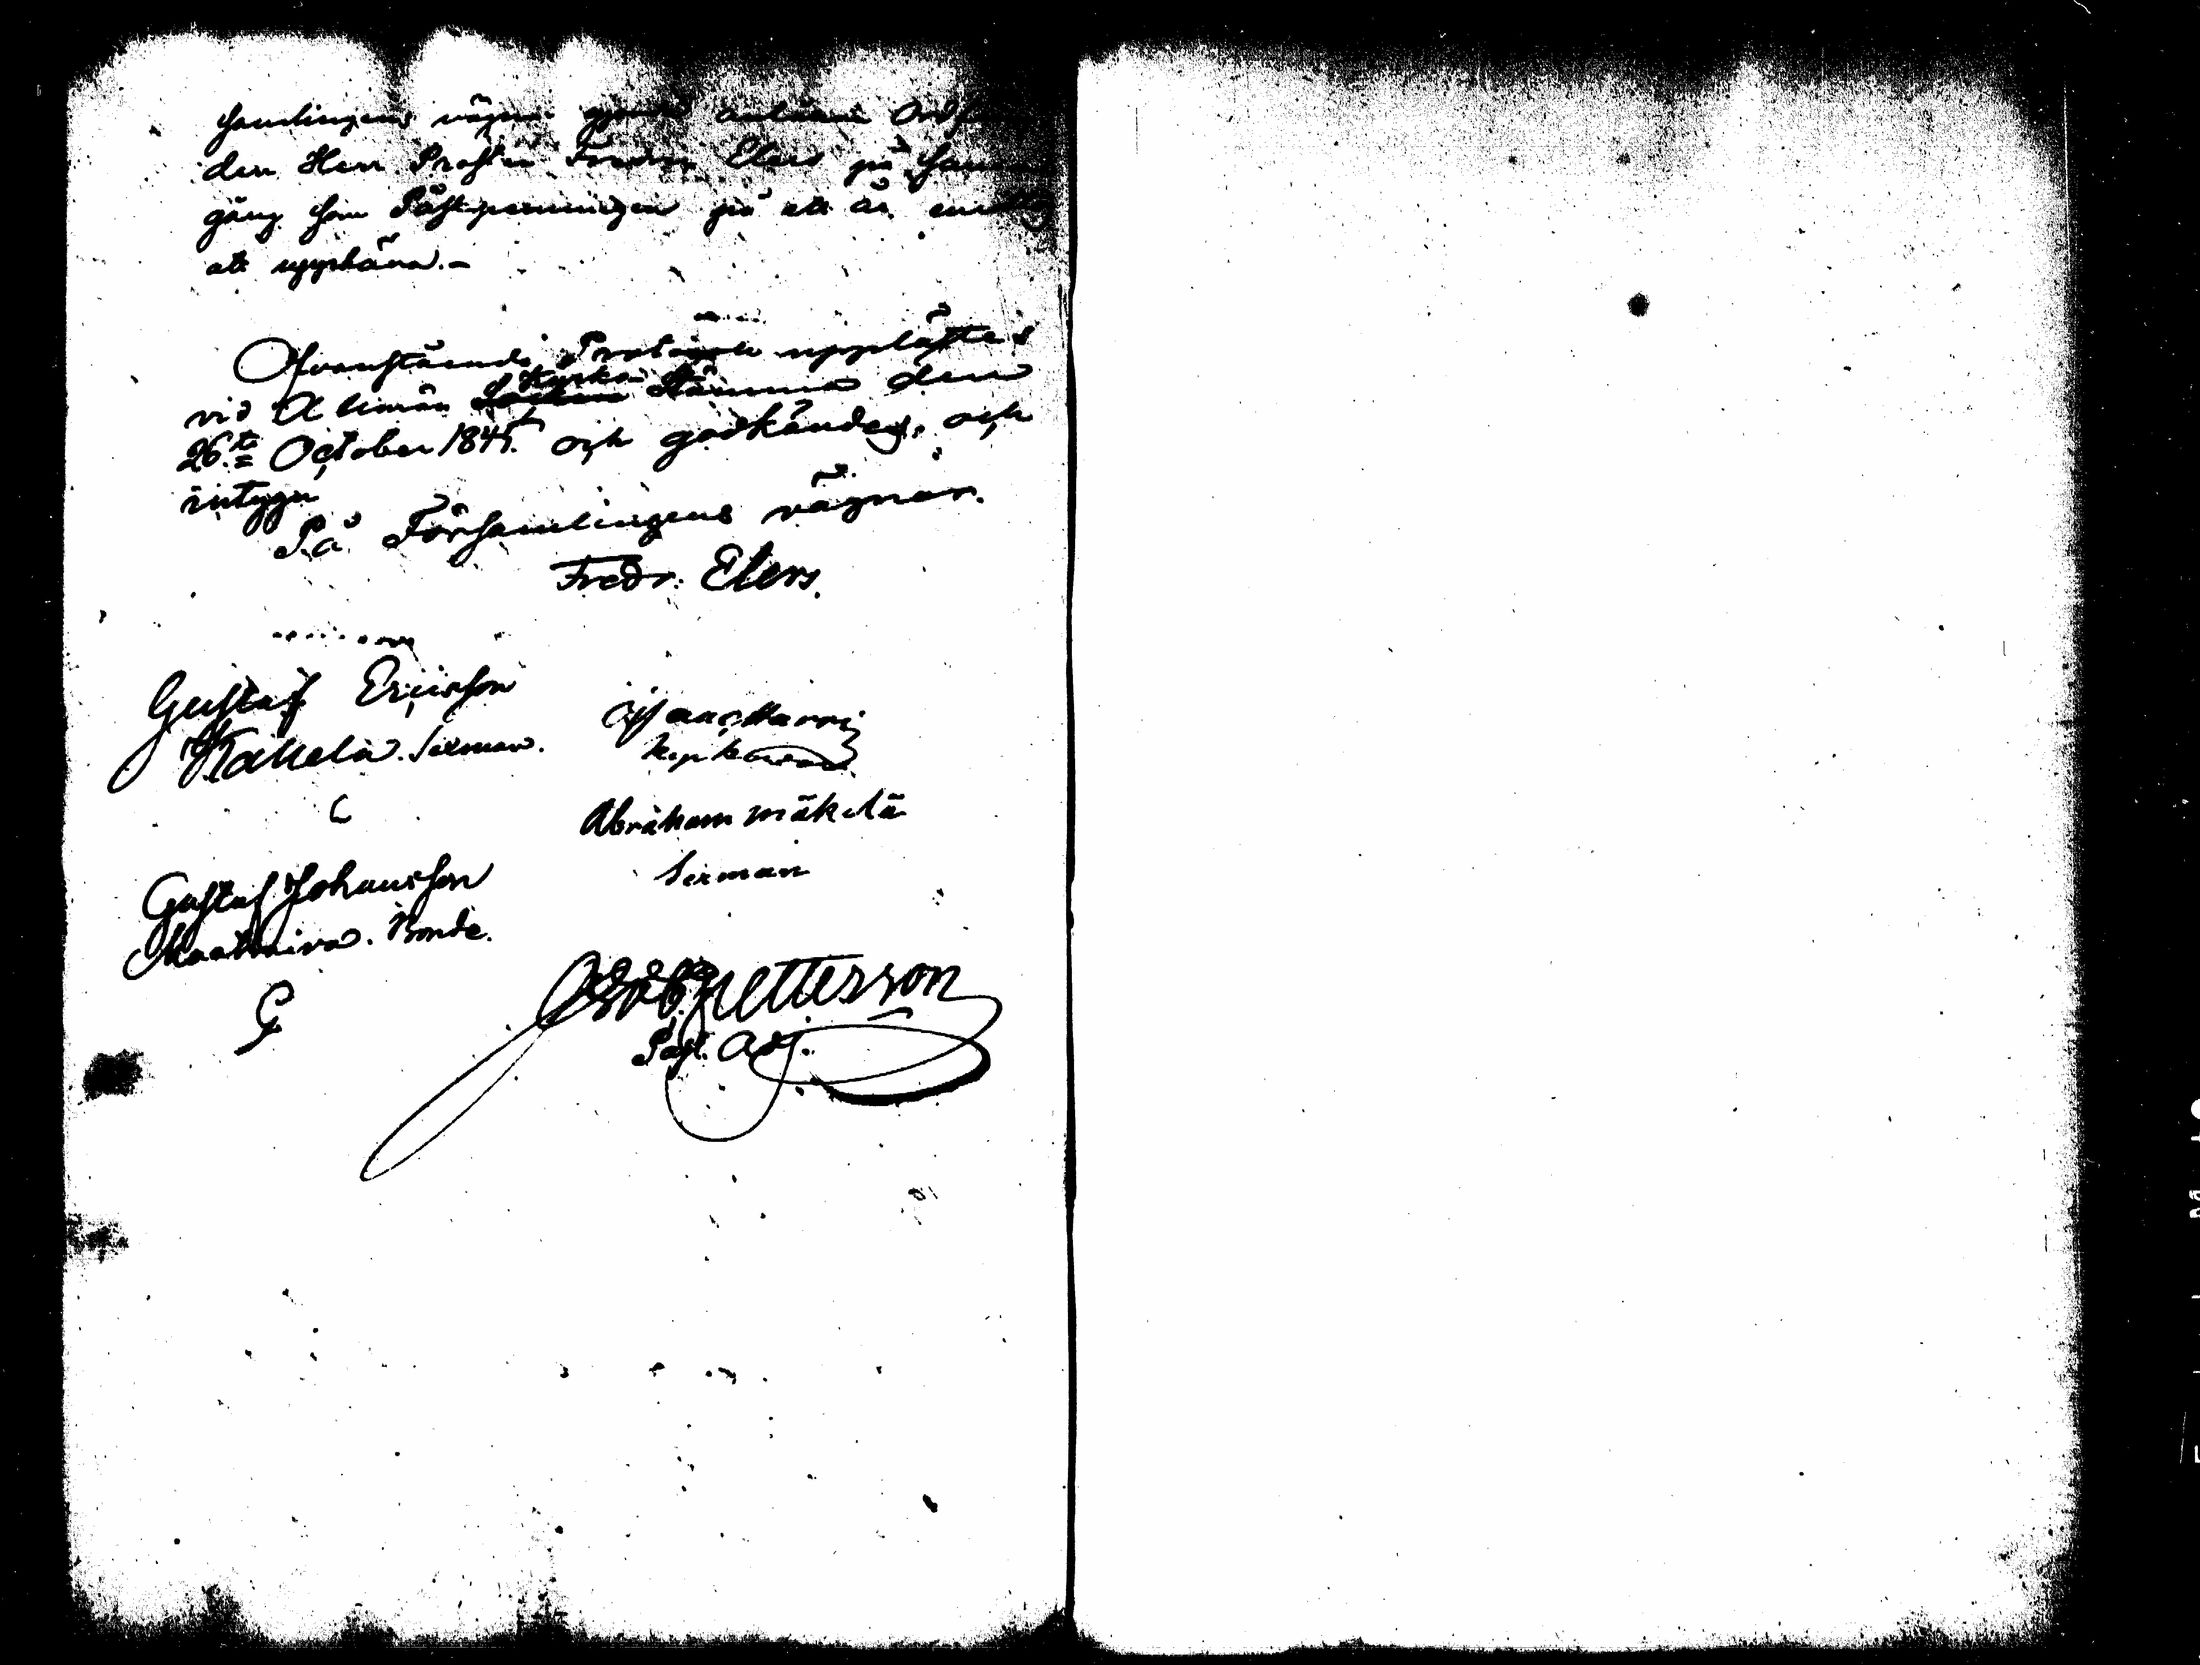 samlingens vägnar gjorde anlänte
den Herr Prosten Fredr. Elers på samma
gång som på ett år
att uppbära.-
Ofvanstående Protocoll upplästes
Kyrko
vid Alman Socken Stämma den
26.te October 1845. och godkändes, och
intyga
På Församlingens vägnar.
Fredr. Elers.
Gustaf Ericsson
Kakela. Sexman.
C
Isaac Harri
Kyrkovärd
Abraham mäkelä
Sexman
Gustaf Johansson
Bonde.
G
petterson
Past. Adj.